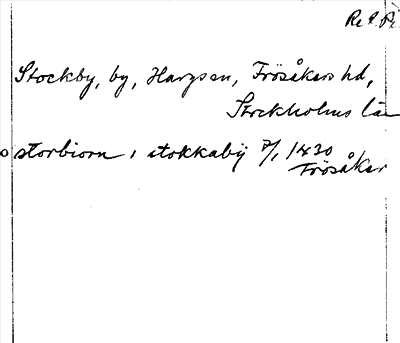 Stockby, by, Hargs sn, Frösåkers hd,
Stockholms län
storbiorn i stokkaby 7/1 1430
Frösåker